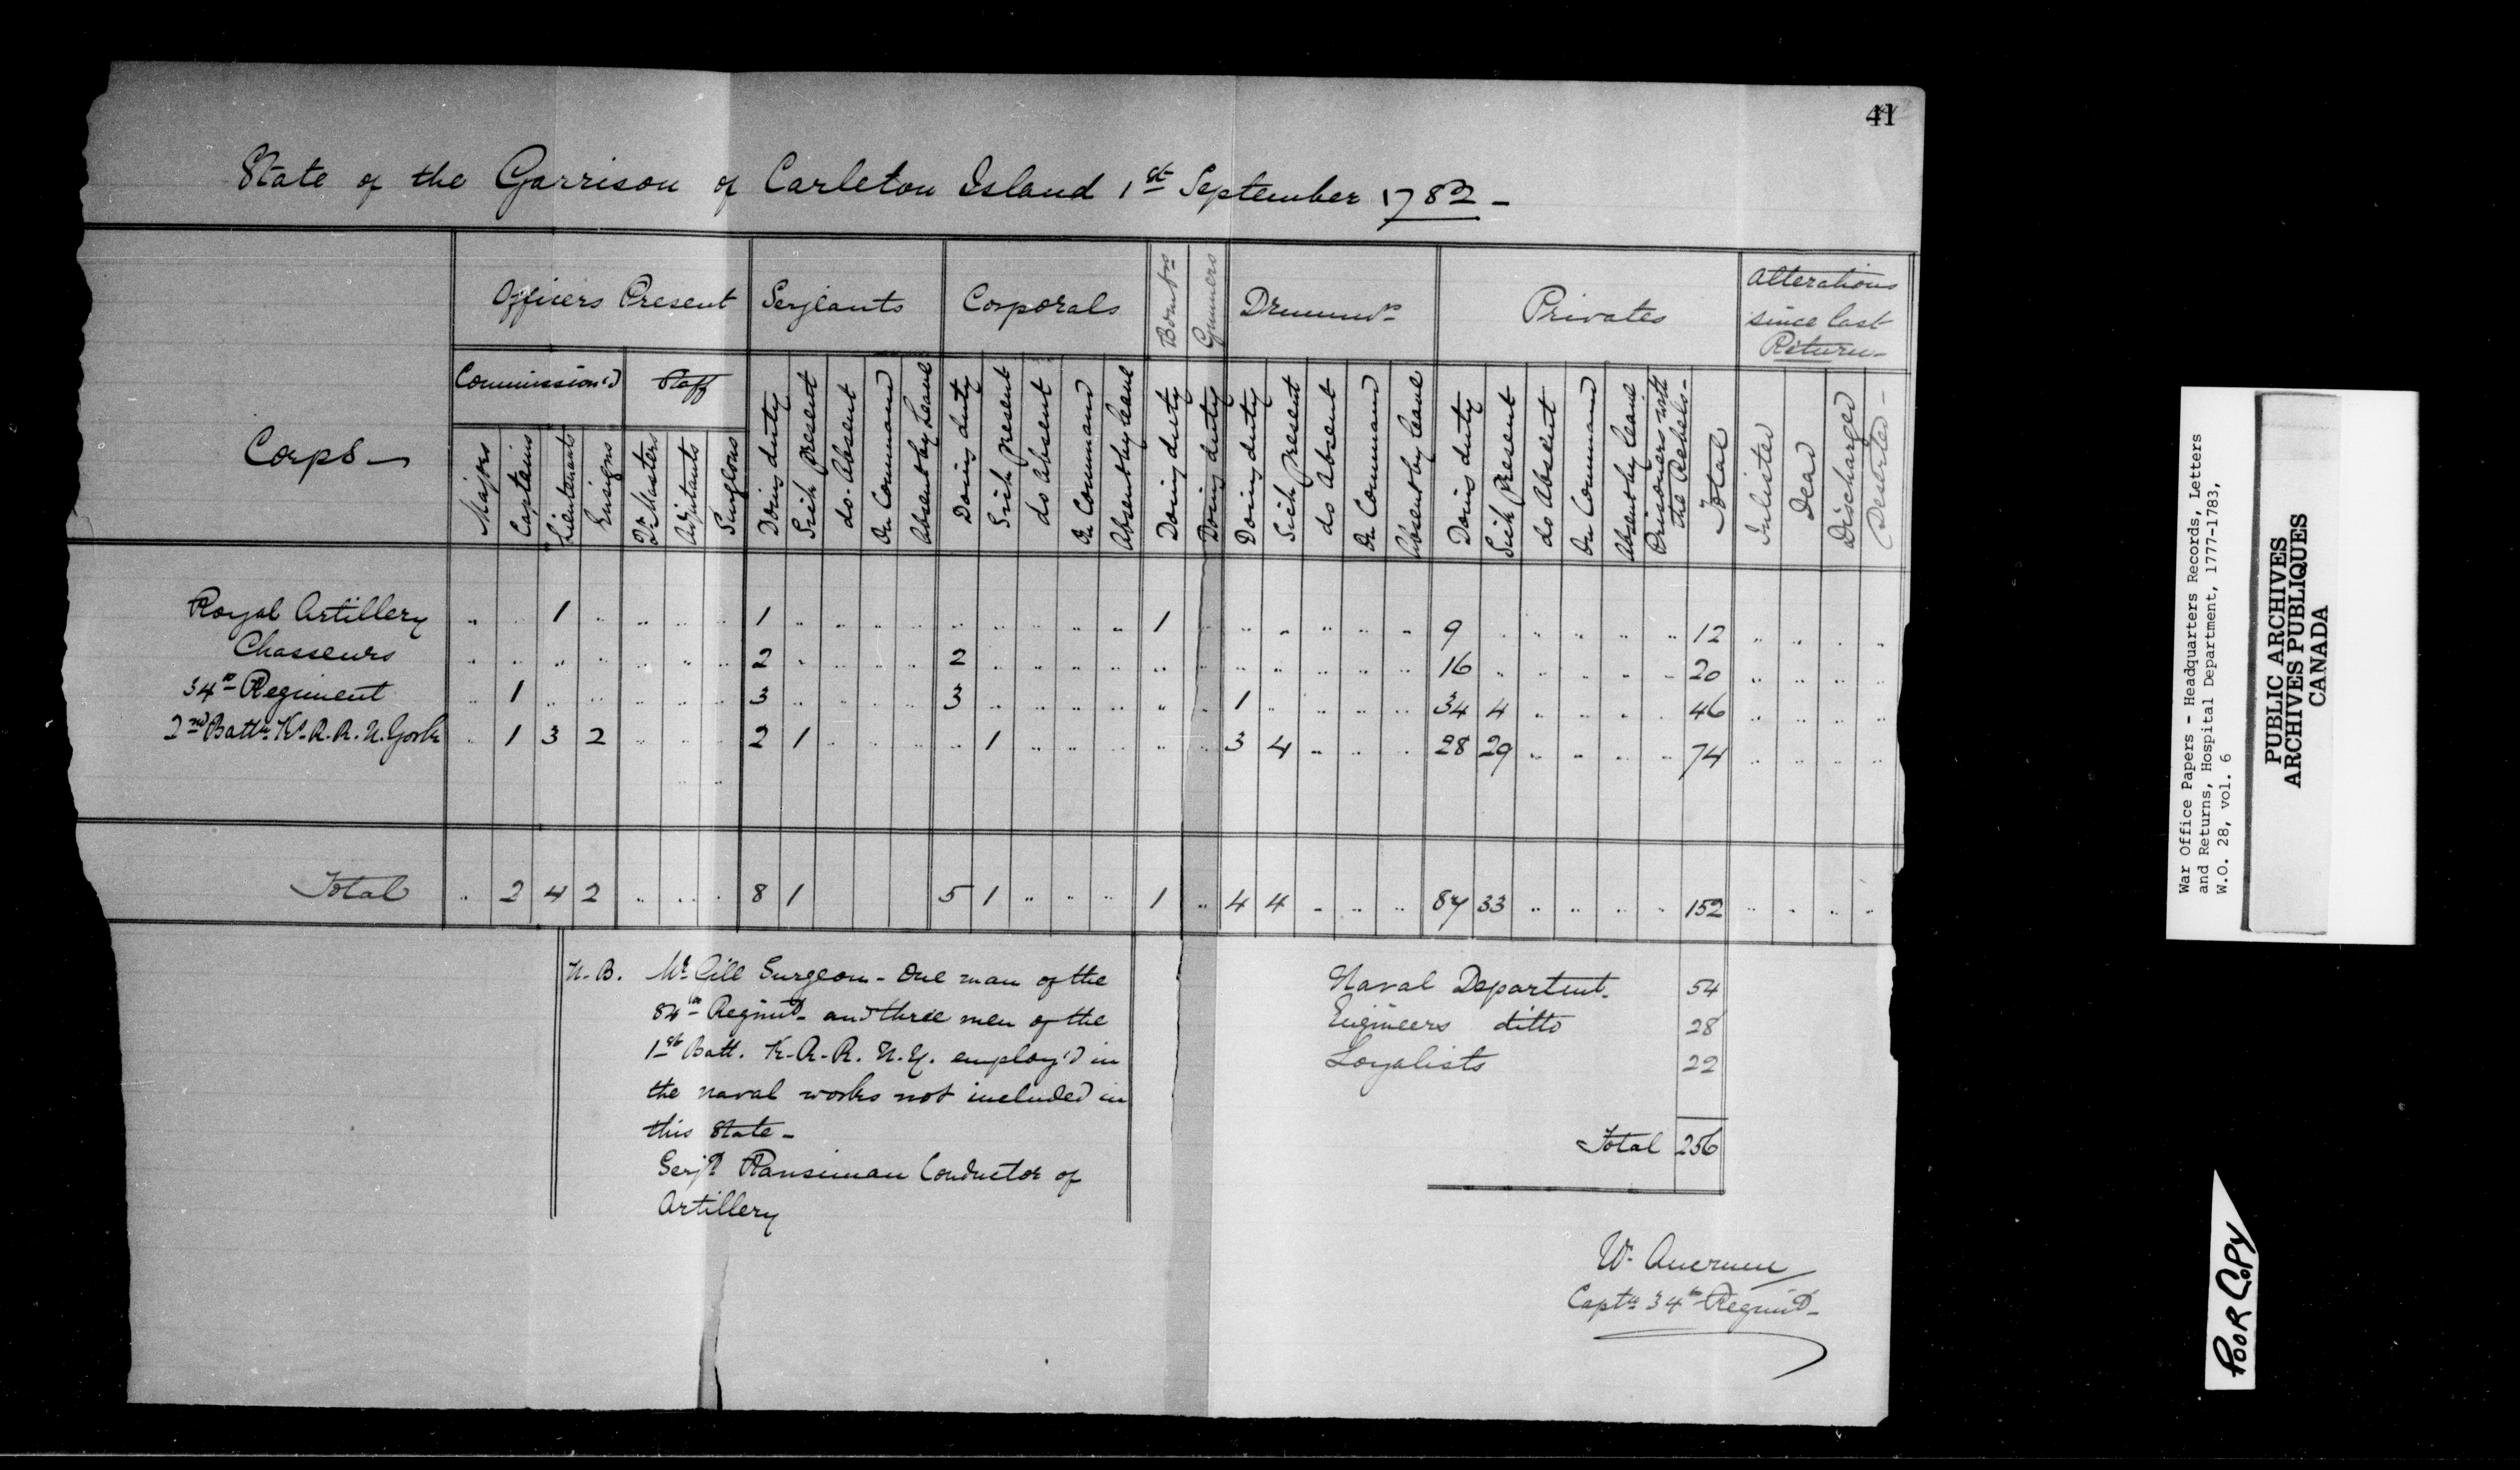 41
State of the Garrison of Carleton Island 1st September 1782 -
Corps -
Officers Present
Serjeants
Corporals
Bombrs
Gunners
Drummrs
Privates
Alterations
since last
Return -
Commission'd
Staff
Majors
Captains
Lieutenants
Ensigns
Qr Masters
Adjutants
Surgeons
Doing duty
Sick present
do. Absent
On Command
Absent by Leave
Doing duty
Sick present
do Absent
On Command
Absent by leave
Doing duty
Doing duty
Doing duty
Sick present
do Absent
On Command
Absent by leave
Doing duty
Sick Present
do Absent
On Command
Absent by leave
Prisoners with
the Rebels -
Total
Inlisted
Dead
Discharged
Deserted -
Royal Artillery .. .. 1 .. .. .. .. 1 .. .. .. .. .. .. .. .. .. 1 .. .. .. .. .. .. 9 .. .. .. .. .. 12 .. .. .. ..
Chasseurs .. .. .. .. .. .. .. 2 .. .. .. .. 2 .. .. .. .. .. .. .. .. .. .. .. 16 .. .. .. .. .. 20 .. .. .. ..
34th Regiment .. 1 .. .. .. .. .. 3 .. .. .. .. 3 .. .. .. .. .. .. 1 .. .. .. .. 34 4 .. .. .. .. 46 .. .. .. ..
2nd Battn Ks. R. R. N. York .. 1 3 2 .. .. .. 2 1 .. .. .. .. 1 .. .. .. .. .. 3 4 .. .. .. 28 29 .. .. .. .. 74 .. .. .. ..
Total .. 2 4 2 .. .. .. 8 1 5 1 .. .. .. 1 .. 4 4 .. .. .. 87 33 .. .. .. .. 152 .. .. .. ..
N. B. Mr Gill Surgeon - One man of the
84th Regimt - and three men of the
1st Batt. K. R. R. N. Y. employ'd in
the naval works not included in
this State -
Serjt Ransiman Conductor of
Artillery
Naval Departmt. 54
Engineers ditto 28
Loyalists 22
Total 256
W. Ancrum
Captn 34th Regimt -
War Office Papers - Headquarters Records, Letters
and Returns, Hospital Department, 1777-1783,
W.O. 28, vol. 6
PUBLIC ARCHIVES
ARCHIVES PUBLIQUES
CANADA
POOR COPY